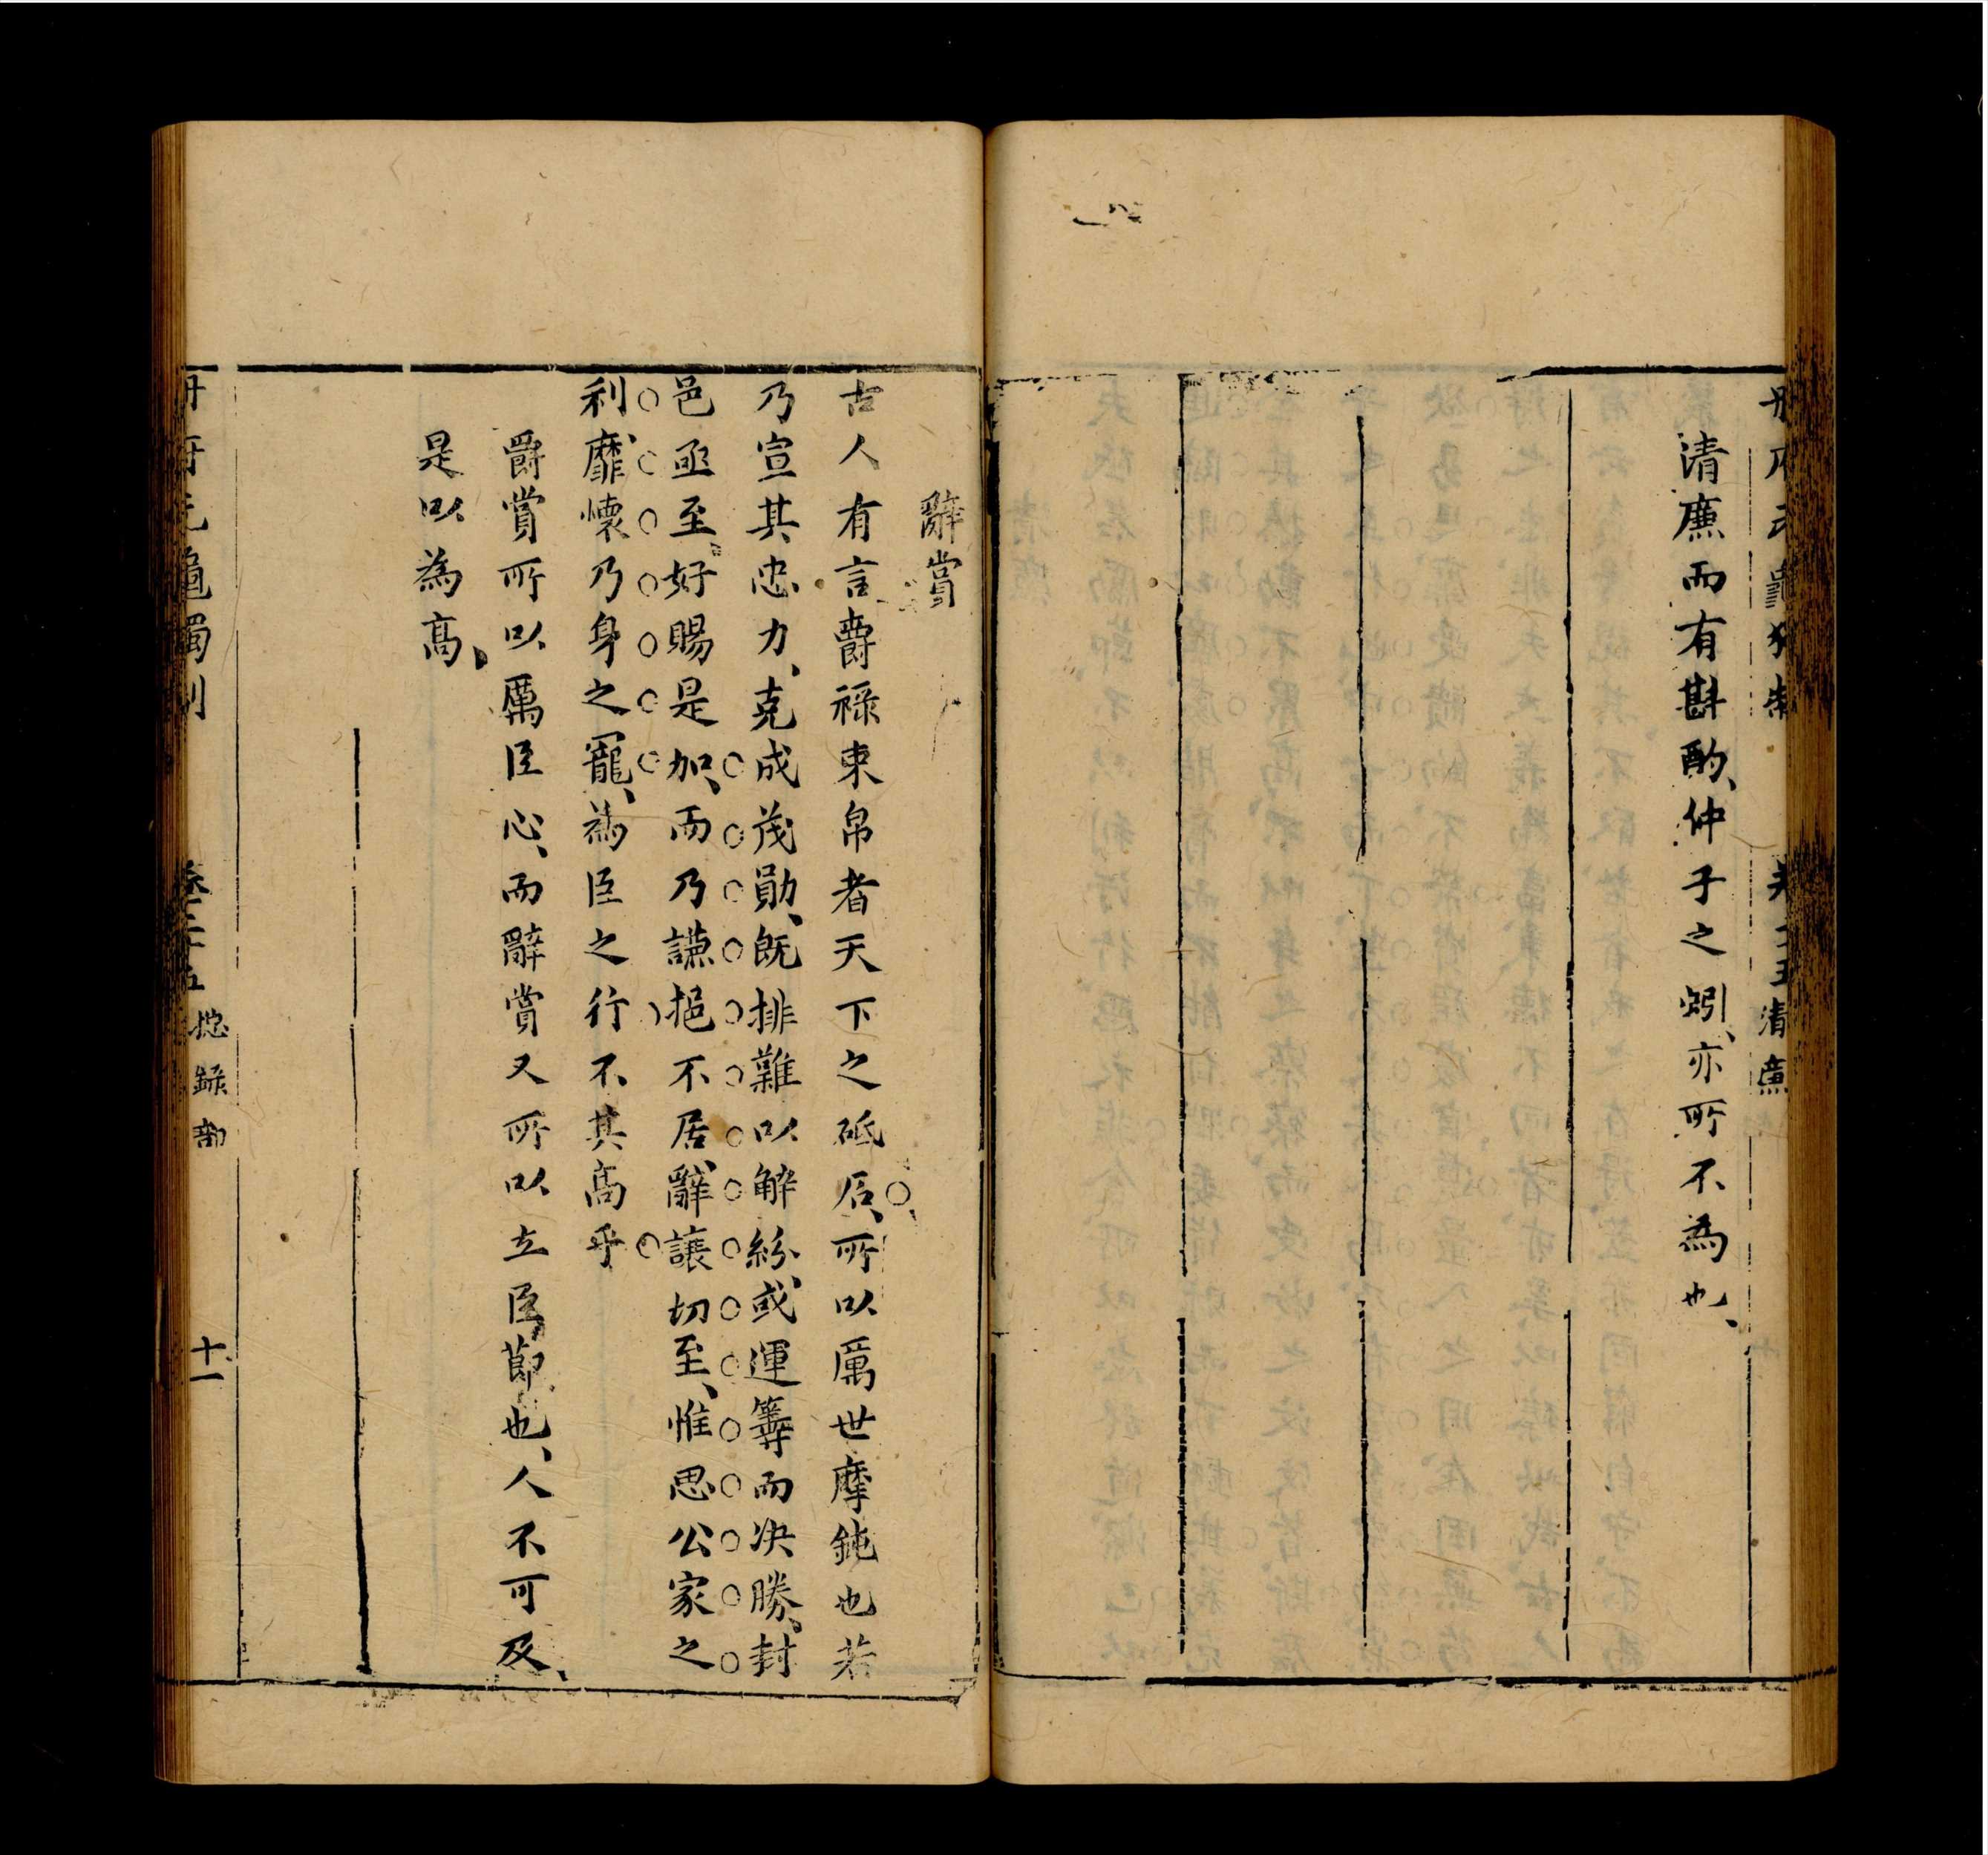 清廉而有斟酌、仲子之蚓、亦所不為也、
辭賞
古人有言爵祿束帛者天下之砥石、所以厲世摩鈍也若
乃宣其忠力、克成茂勛、既排難以解紛、或運籌而决勝、封
邑亟至、好賜是加、而乃謙挹不居、辭讓切至、惟思公家之
利、靡懷乃身之寵、為臣之行不其高乎
爵賞所以厲臣心、而辭賞又所以立臣節也、人不可及、
是以為高、
冊府元龜獨制 卷二十五 總錄部 十一